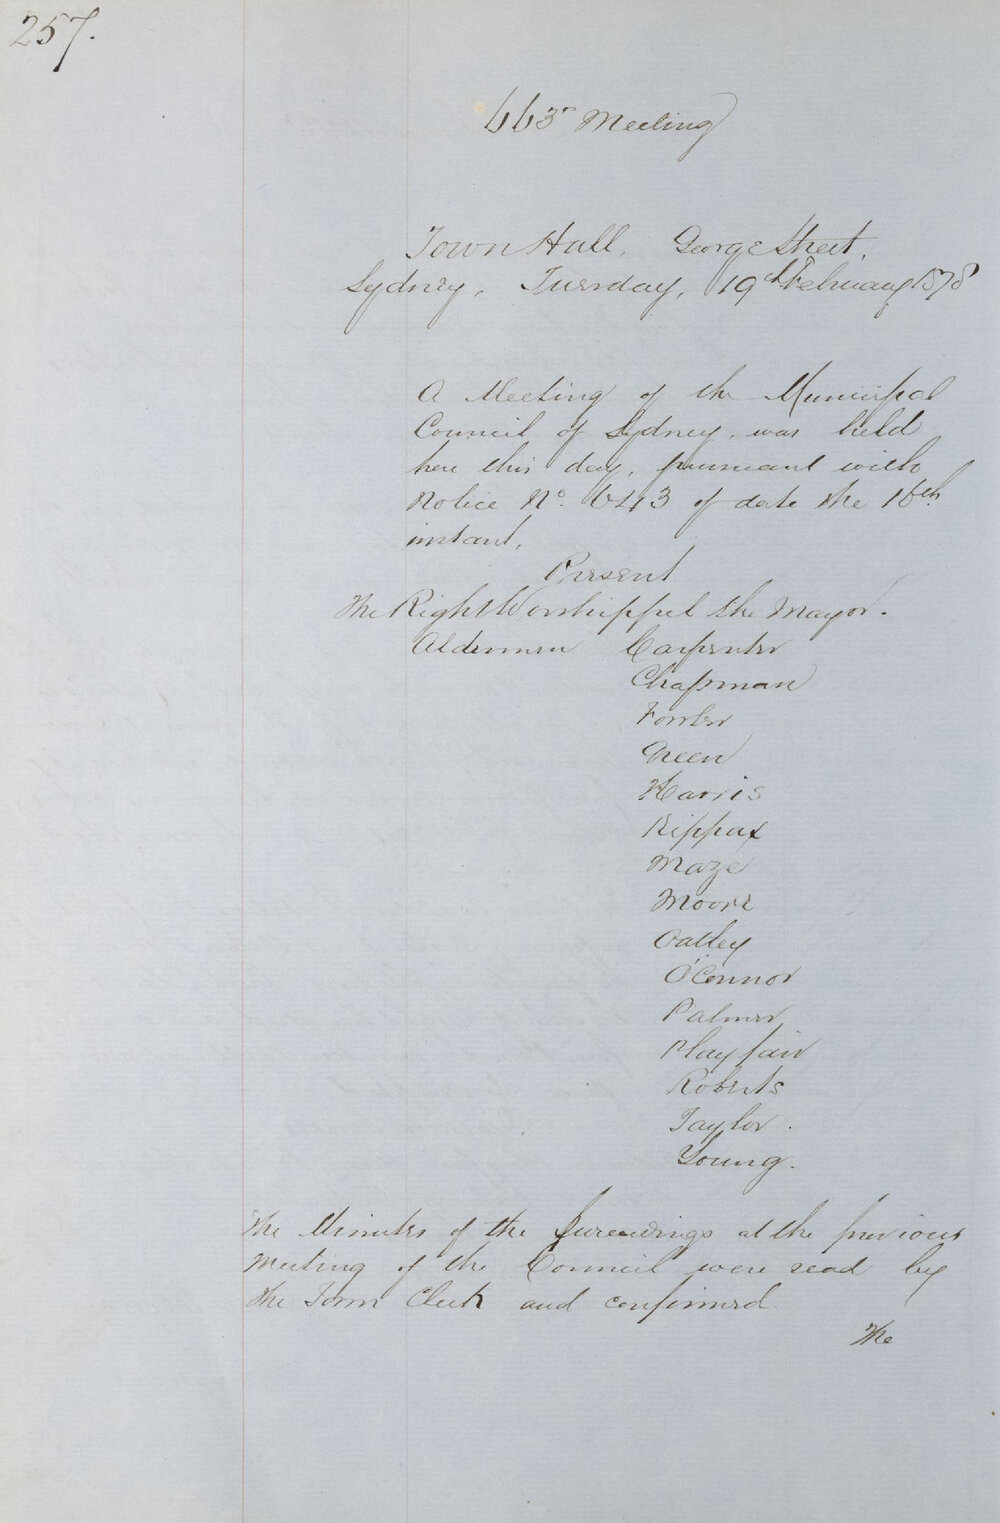 257.
663rd Meeting
Town Hall, George Street,
Sydney, Tuesday, 19th February 1878
A Meeting of the Municipal
Council of Sydney, was held
here this day, pursuant with
Notice No. 6413 of date the 16th
instant,
Present
The Right Worshipful the Mayor.
Aldermen Carpenter
Chapman
Fowler
Green
Harris
Kippax
Maze
Moore
Oatley
O'Connor
Palmer
Playfair
Roberts
Taylor.
Young.
The Minutes of the Proceedings at the previous
Meeting of the Council were read by
the Town Clerk and confirmed.
The